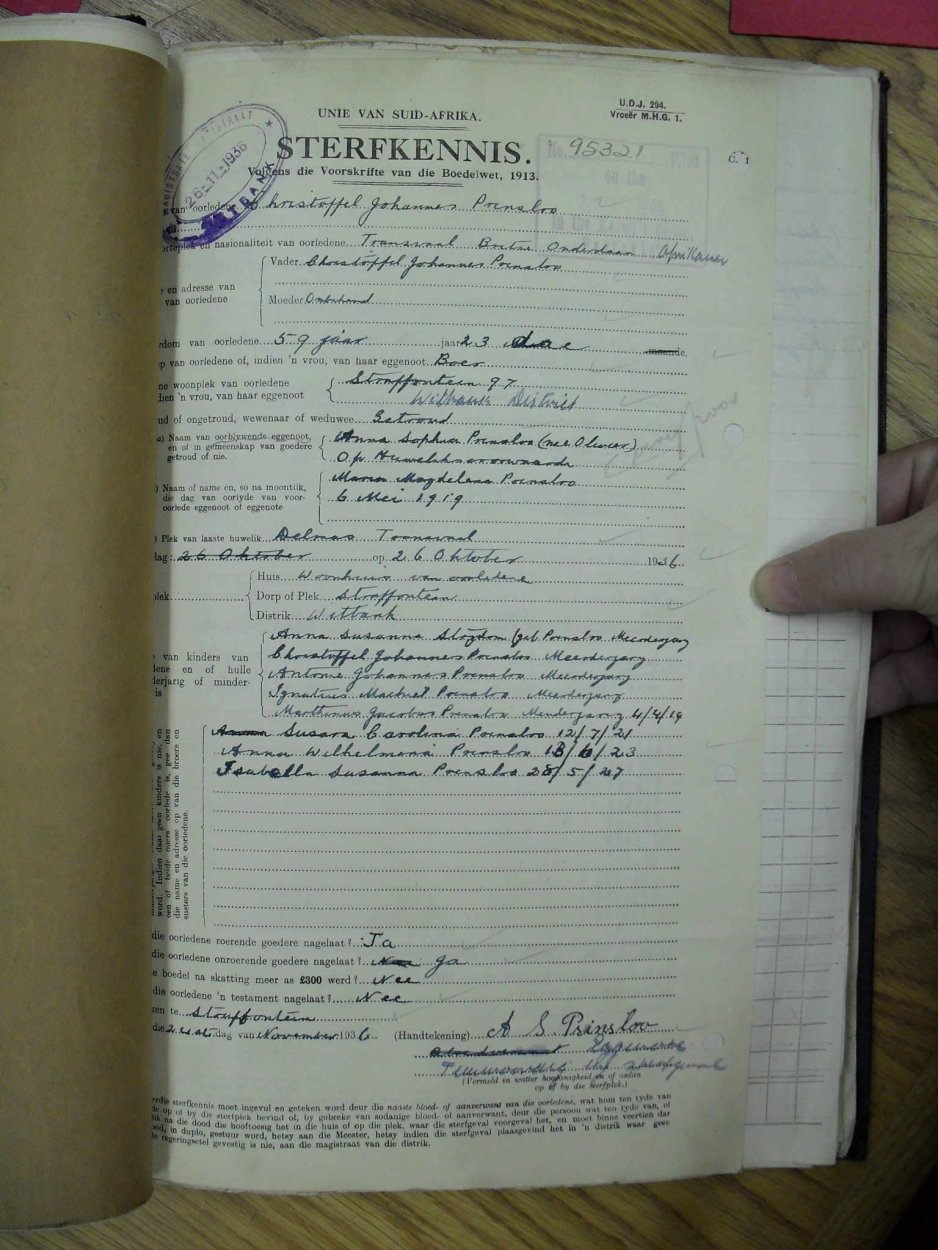 U.D.J. 294.
Vroeër M.H.G. 1.
UNIE VAN SUID-AFRIKA.
STERFKENNIS.
95321
C. 1
Volgens die Voorskrifte van die Boedelwet, 1913.
MAGISTRAAT
26-11-1936
WITBANK
van oorledene Christoffel Johannes Prinsloo
en nasionaliteit van oorledene Transvaal Britse Onderdaan Afrikaner
Vader Christoffel Johannes Prinsloo
e en adresse van
van oorledene
Moeder Onbekend
dom van oorledene 59 jaar jaar 23 dae maande.
p van oorledene of, indien 'n vrou, van haar eggenoot Boer
ne woonplek van oorledene
dien 'n vrou, van haar eggenoot
97
Witbank District
ud of ongetroud, wewenaar of weduwee Getroud
a) Naam van oorblywende eggenoot,
en of in gemeenskap van goedere
getroud of nie.
Anna Sophia Prinsloo (nee Olivier)
Op Huweliksvoorwaarde
) Naam of name en, so na moontlik,
die dag van oorlyde van voor-
oorlede eggenoot of eggenote
Maria Magdelena Prinsloo
6 Mei 1919
) Plek van laaste huwelik Delmas Transvaal
ag: 26 Oktober op 26 Oktober 1936
Huis Woonhuis van oorledene
lek Dorp of Plek
Distrik Witbank
e van kinders van
dene en of hulle
derjarig of minder-
is
Anna Susanna (geb Prinsloo Meerderjarig
Christoffel Johannes Prinsloo Meerderjarig
Antonie Johannes Prinsloo Meerderjarig
Ignatius Prinsloo Meerderjarig
Marthinus Jacobus Prinsloo Minderjarig 4/4/19
Anna Susara Carolina Prinsloo 12/7/21
Anna Wilhelmena Prinsloo 13/6/23
Isabella Susanna Prinsloo 28/5/27
word. Indien daar geen kinders is nie, en
een of beide ouers oorlede is, gee dan
die name en adresse op van die broers en
susters van die oorledene.
die oorledene roerende goedere nagelaat? Ja
die oorledene onroerende goedere nagelaat? Nee Ja
e boedel na skatting meer as £300 werd? Nee
die oorledene 'n testament nagelaat? Nee
en te
die dag van November 1936 (Handtekening) A S Prinsloo
(Vermeld in watter hoedanigheid en of aldan
op of by die sterfplek.)
erdie sterfkennis moet ingevul en geteken word deur die naaste bloed- of aanverwant van die oorledene, wat hom ten tyde van
de op of by die sterfplek bevind of, by gebreke van sodanige bloed- of aanverwant, deur die persoon wat ten tyde van, of
ik na die dood die hooftoesig het in die huis of op die plek, waar die sterfgeval voorgeval het, en moet binne veertien dae
ood, in duplo, gestuur word, hetsy aan die Meester, hetsy indien die sterfgeval plaasgevind het in 'n distrik waar geen
de regeringsetel gevestig is nie, aan die magistraat van die distrik.